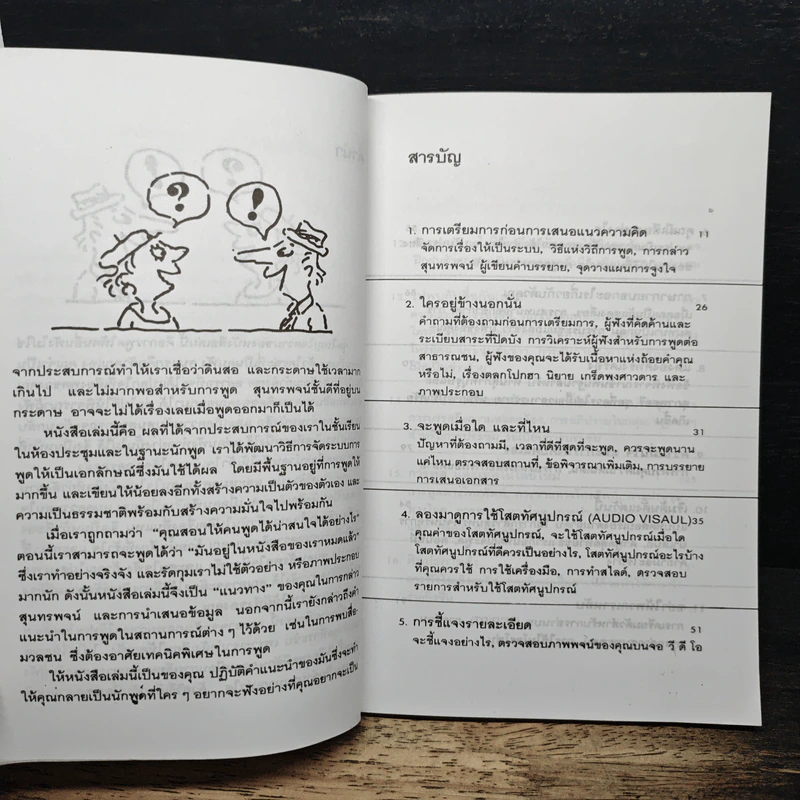 ?
!
จากประสบการณ์ทำให้เราเชื่อว่าดินสอ และกระดาษใช้เวลามาก
เกินไป และไม่มากพอสำหรับการพูด สุนทรพจน์ชั้นดีที่อยู่บน
กระดาษ อาจจะไม่ได้เรื่องเลยเมื่อพูดออกมาก็เป็นได้
หนังสือเล่มนี้คือ ผลที่ได้จากประสบการณ์ของเราในชั้นเรียน
ในห้องประชุมและในฐานะนักพูด เราได้พัฒนาวิธีการจัดระบบการ
พูดให้เป็นเอกลักษณ์ซึ่งมันใช้ได้ผล โดยมีพื้นฐานอยู่ที่การพูดให้
มากขึ้น และเขียนให้น้อยลงอีกทั้งสร้างความเป็นตัวของตัวเอง และ
ความเป็นธรรมชาติพร้อมกับสร้างความมั่นใจไปพร้อมกัน
เมื่อเราถูกถามว่า “คุณสอนให้คนพูดได้น่าสนใจได้อย่างไร”
ตอนนี้เราสามารถจะพูดได้ว่า “มันอยู่ในหนังสือของเราหมดแล้ว”
ซึ่งเราทำอย่างจริงจัง และรัดกุมเราไม่ใช้ตัวอย่าง หรือภาพประกอบ
มากนัก ดังนั้นหนังสือเล่มนี้จึงเป็น “แนวทาง” ของคุณในการกล่าว
สุนทรพจน์ และการนำเสนอข้อมูล นอกจากนี้เรายังกล่าวถึงคำ
แนะนำในการพูดในสถานการณ์ต่าง ๆ ไว้ด้วย เช่นในการพบสื่อ-
มวลชน ซึ่งต้องอาศัยเทคนิคพิเศษในการพูด
ให้หนังสือเล่มนี้เป็นของคุณ ปฏิบัติคำแนะนำของมันซึ่งจะทำ
ให้คุณกลายเป็นนักพูดที่ใคร ๆ อยากจะฟังอย่างที่คุณอยากจะเป็น
สารบัญ
1. การเตรียมการก่อนการเสนอแนวความคิด 11
จัดการเรื่องให้เป็นระบบ, วิธีแห่งวิถีการพูด, การกล่าว
สุนทรพจน์ ผู้เขียนคำบรรยาย, จุดวางแผนการจูงใจ
2. ใครอยู่ข้างนอกนั่น 26
คำถามที่ต้องถามก่อนการเตรียมการ, ผู้ฟังที่คัดค้านและ
ระเบียบสาระที่ปิดบัง การวิเคราะห์ผู้ฟังสำหรับการพูดต่อ
สาธารณชน, ผู้ฟังของคุณจะได้รับเนื้อหาแห่งถ้อยคำคุณ
หรือไม่, เรื่องตลกโปกฮา นิยาย เกร็ดพงศาวดาร และ
ภาพประกอบ
3. จะพูดเมื่อใด และที่ไหน 31
ปัญหาที่ต้องถามมี, เวลาที่ดีที่สุดที่จะพูด, ควรจะพูดนาน
แค่ไหน ตรวจสอบสถานที่, ข้อพิจารณาเพิ่มเติม, การบรรยาย
การเสนอเอกสาร
4. ลองมาดูการใช้โสตทัศนูปกรณ์ (AUDIO VISAUL) 35
คุณค่าของโสตทัศนูปกรณ์, จะใช้โสตทัศนูปกรณ์เมื่อใด
โสตทัศนูปกรณ์ที่ดีควรเป็นอย่างไร, โสตทัศนูปกรณ์อะไรบ้าง
ที่คุณควรใช้ การใช้เครื่องมือ, การทำสไลด์, ตรวจสอบ
รายการสำหรับใช้โสตทัศนูปกรณ์
5. การชี้แจงรายละเอียด 51
จะชี้แจงอย่างไร, ตรวจสอบภาพพจน์ของคุณบนจอ วี ดี โอ